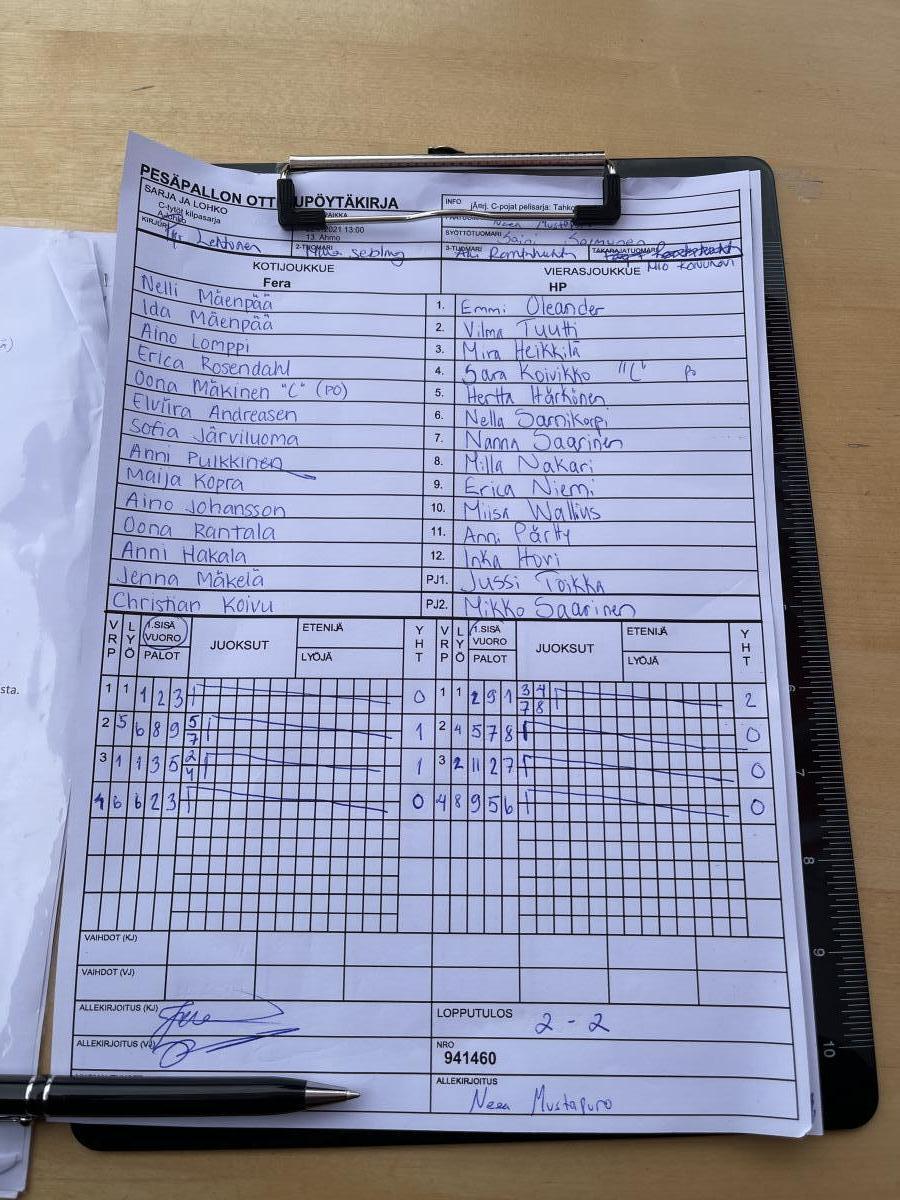 PESÄPALLON OTT UPÖYTÄKIRJA
SARJA JA LOHKO
C-tytöt kilpasarja
KIRJURI
Lehtonen
PAIKKA
2021 13:00
13. Ahmo
2-TUOMARI
INFO jÄrj. C-pojat pelisarja: Tahko
SYÖTTÖTUOMARI
3-TUOMARI
TAKARAJATUOMARI
KOTIJOUKKUE
Fera
VIERASJOUKKUE
HP
Nelli Mäenpää 1. Emmi Oleander
Ida Mäenpää 2. Vilma Tuutti
Aino Lomppi 3. Mira Heikkilä
Erica Rosendahl 4. Sara Koivikko "C" Po
Oona Mäkinen "C" (PO) 5. Hertta Härkönen
Elviira Andreasen 6. Nella Sarnikorpi
Sofia Järviluoma 7. Nanna Saarinen
Anni Pulkkinen 8. Milla Nakari
Maija Kopra 9. Erica Niemi
Aino Johansson 10. Miisa Wallius
Oona Rantala 11. Anni Pärtty
Anni Hakala 12. Inka Hovi
Jenna Mäkelä PJ1. Jussi Toikka
Christian Koivu PJ2. Mikko Saarinen
VRP LYÖ 1.SISÄ VUORO PALOT JUOKSUT ETENIJÄ LYÖJÄ YHT VRP LYÖ 1.SISÄ VUORO PALOT JUOKSUT ETENIJÄ LYÖJÄ YHT
1 1 1 2 3 0 1 1 2 9 1 3/7 4/8 2
2 5 6 8 9 5/7 1 2 4 5 7 8 0
3 1 1 3 5 2/4 1 3 2 11 2 7 0
4 6 6 2 3 0 4 8 9 5 6 0
VAIHDOT (KJ)
VAIHDOT (VJ)
ALLEKIRJOITUS (KJ)
ALLEKIRJOITUS (VJ)
LOPPUTULOS 2 - 2
NRO
941460
ALLEKIRJOITUS
Neea Mustapuro
sta.